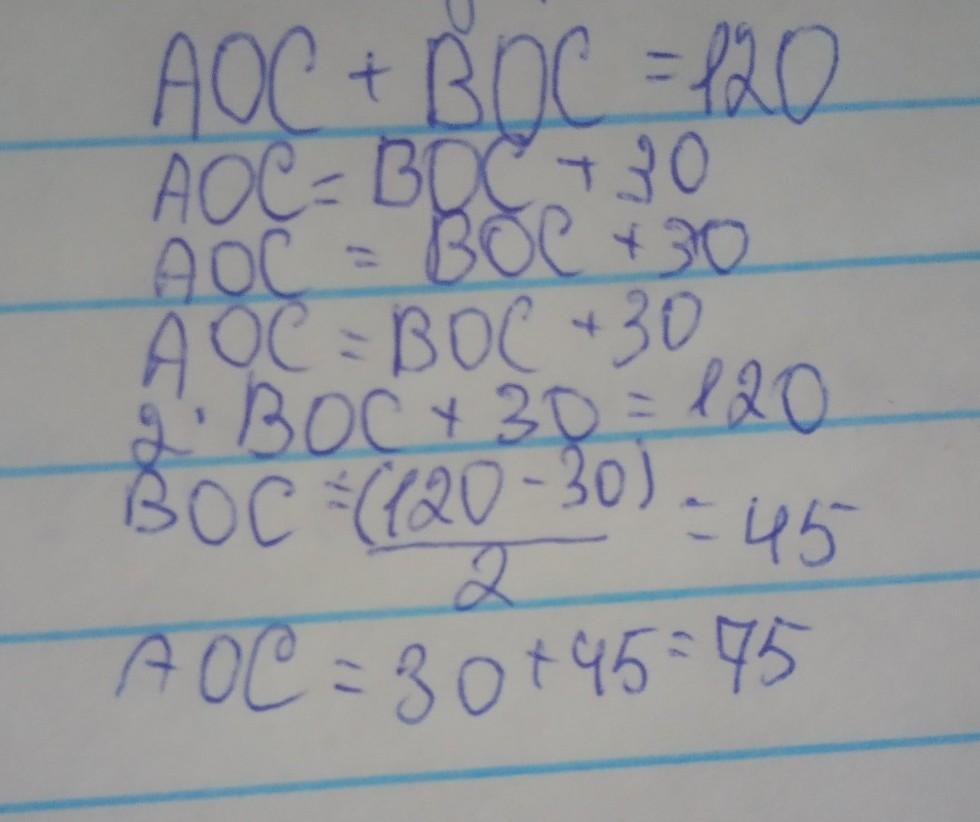 AOC + BOC = 120
AOC = BOC + 30
AOC = BOC + 30
AOC = BOC + 30
2 · BOC + 30 = 120
BOC = (120 - 30) / 2 = 45
AOC = 30 + 45 = 75